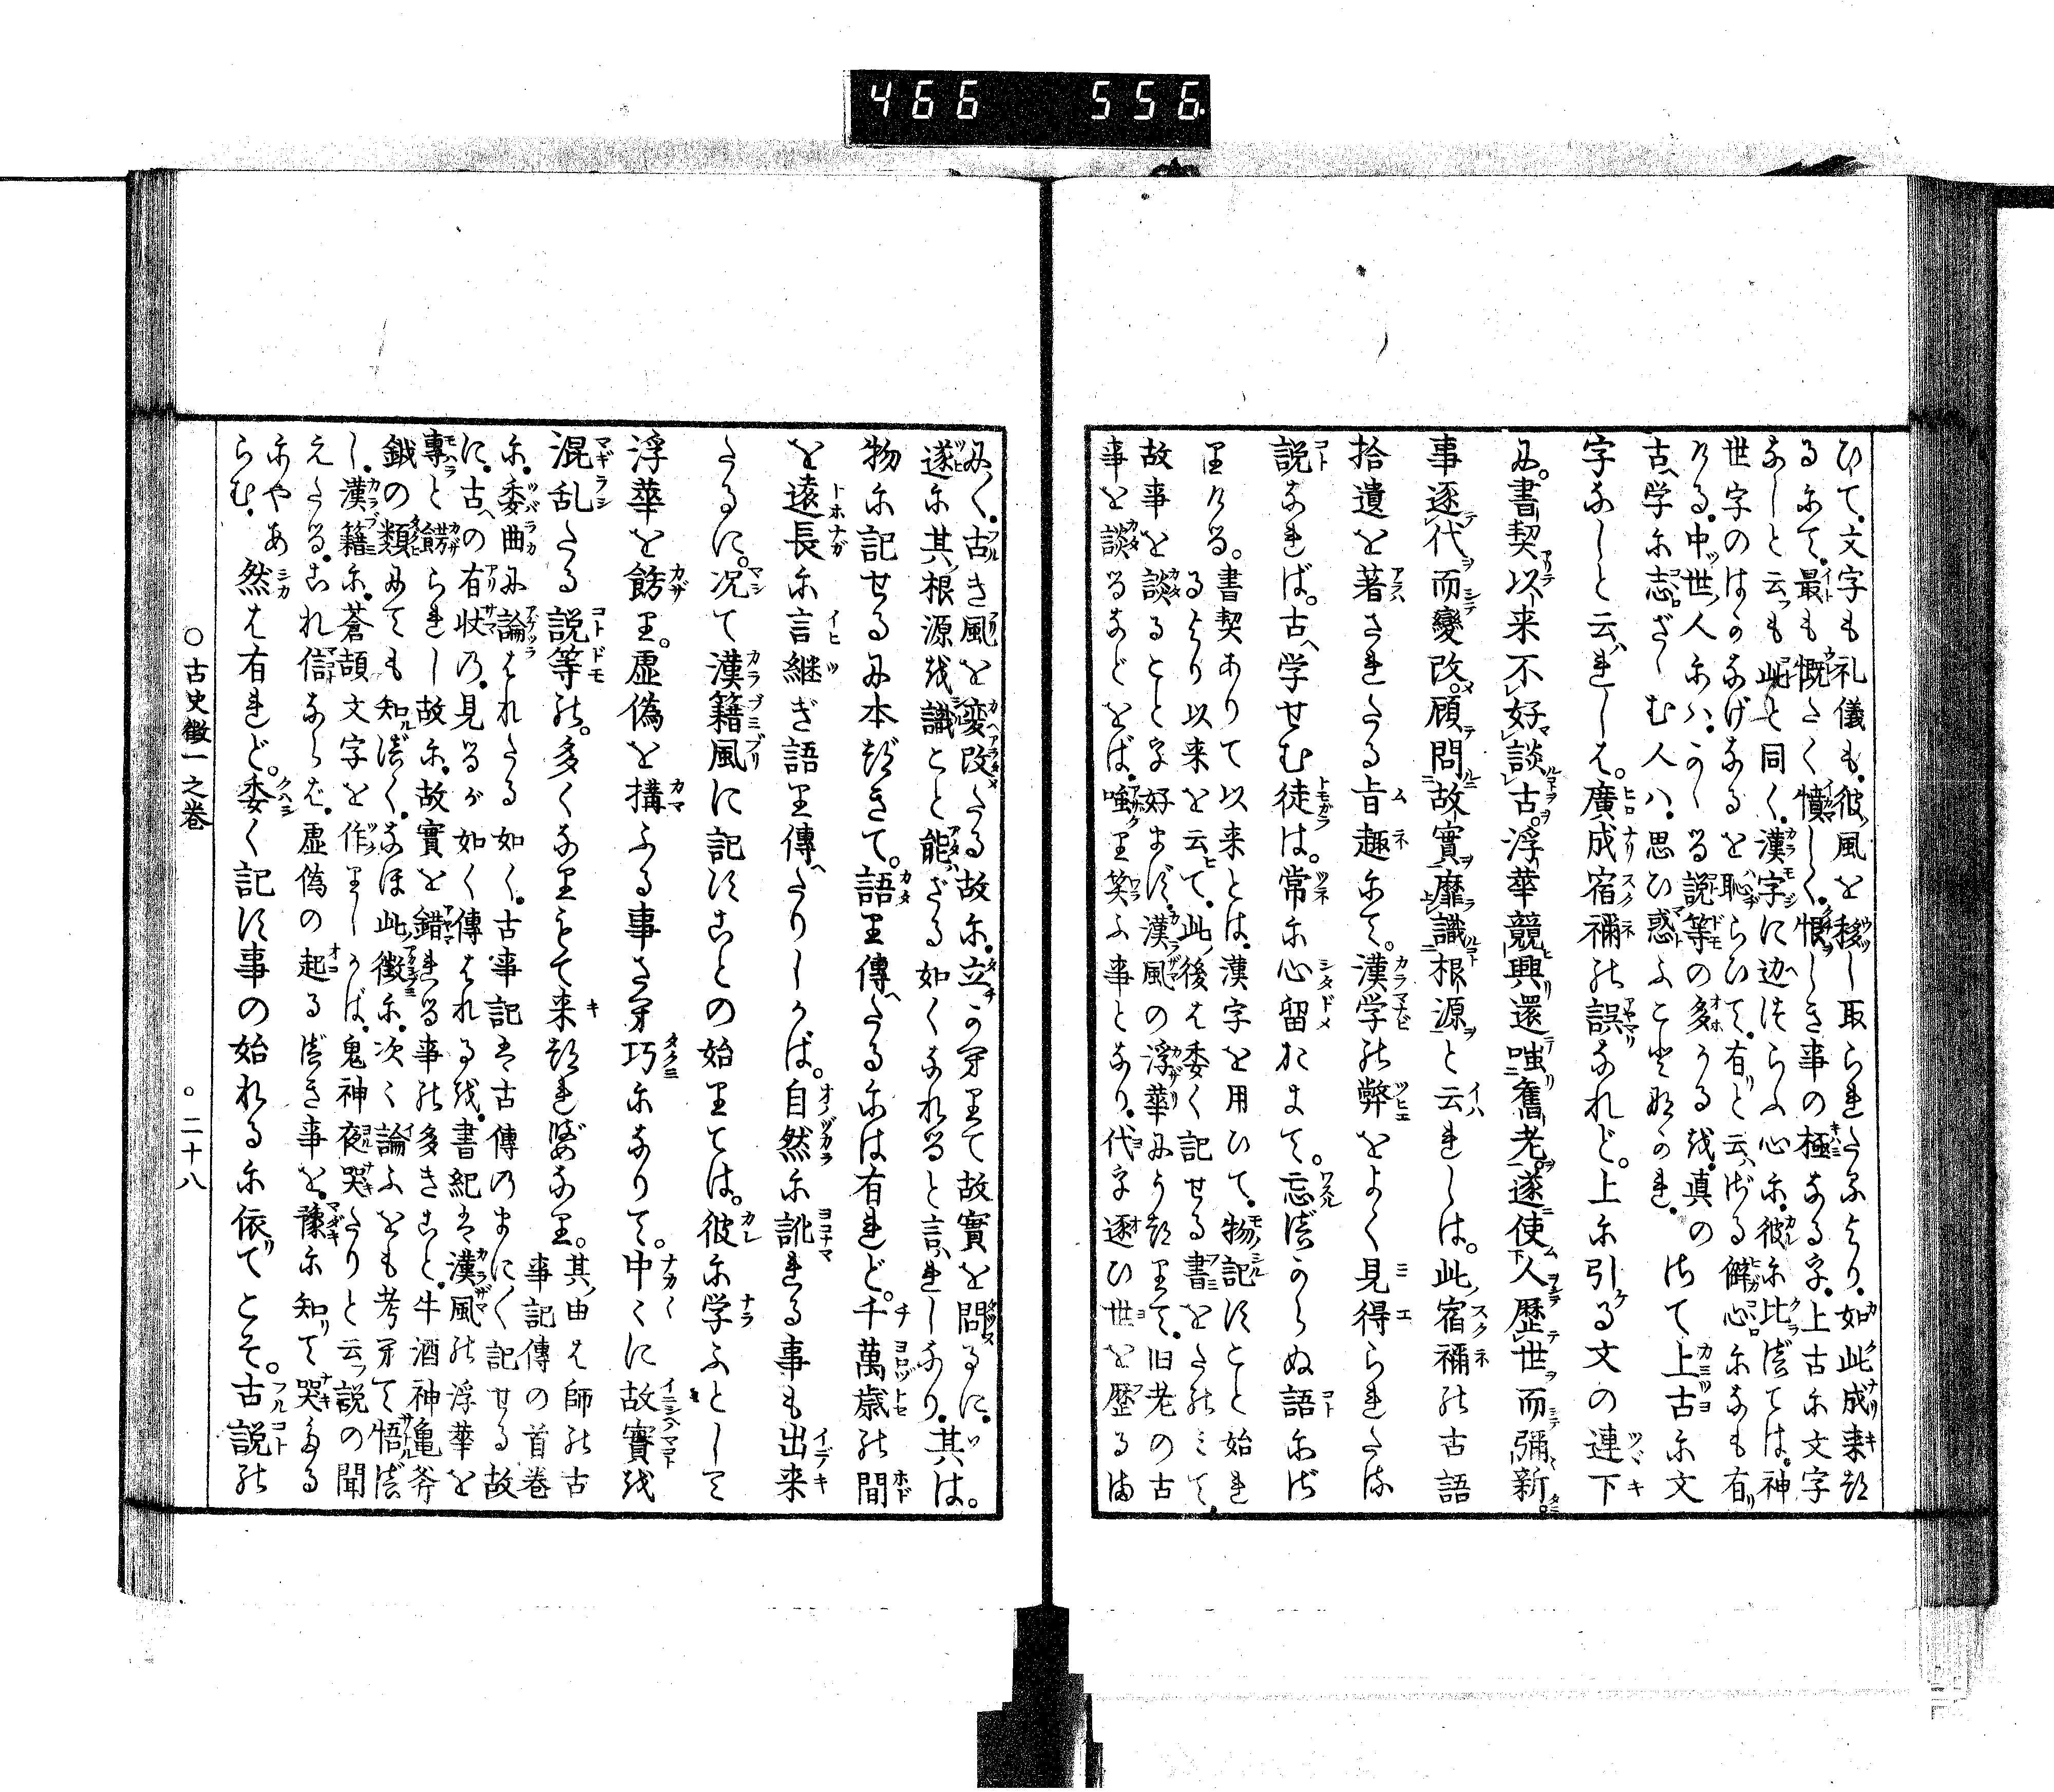 466 556
ひて。文字も礼儀も。彼風を移し取られたるより。如此成来ぬ
るにて。最も慨たく憤しく。恨しき事の極なる字。上古に文字
なしと云も此と同く。漢字に辺づらふ心に。彼に比べては。神
世字のはかなげなるを恥らひて。有と云ざる僻心にも有
ける。中世人には。かゝる説等の多かる故。真の
古学に志ざゝむ人は。思ひ惑ふことなかれ。さて上古に文
字なしと云れしは。廣成宿禰の誤なれど。上に引る文の連下
に。書契以来不好談古。浮華競興還嗤舊老。遂使人歴世而彌新。
事逐代而變改。顧問故實靡識根源と云れしは。此宿禰の古語
拾遺を著されたる旨趣にて。漢学の弊をよく見得られたる
説なれば。古学せむ徒は。常に心留おきて。忘べからぬ語にぞ
りける。書契ありて以来とは。漢字を用ひて。物記すこと始れ
るより以来を云て。此後は委く記せる書をたのみて。
故事を談ることを好まず。漢風の浮華にうつりて。旧老の古
事を談るなどをば。嗤り笑ふ事となり。代を逐ひ世を歴るま
にく。古き風を変改たる故に。立かへりて故實を問るに。其は。
遂に其根源を識こと能ざる如くなれると言れしなり。
物に記せるに本づきて。語り傳へたるには有れど。千萬歳の間
を遠長に言継ぎ語り傳へたりしかば。自然に訛れる事も出来
たるに。况て漢籍風に記すことの始りては。彼に学ふとして
浮華を餝り。虚偽を搆ふる事さへ巧になりて。中々に故實を
混乱たる説等の。多くなりもて来ぬれ婆なり。其由は師の古
事記傳の首巻
に。委曲に論はれたる如く。古事記は古傳のまにく記せる故
に。古の有状の。見るが如く傳はれるを。書紀は漢風の浮華を
專と餝られし故に。故實を錯れる事の多きこと。牛酒神亀斧
鉞の類にても知べく。なほ此徴に。次々論ふをも考へて悟べ
し。漢籍に。蒼頡文字を作りしかば。鬼神夜哭たりと云説の聞
えたる。これ信ならば。虚偽の起るべき事を。豫に知て哭たる
にやあ
らむ。然は有れど。委く記す事の始れるに依てこそ。古説の
○古史徴一之巻 ○二十八